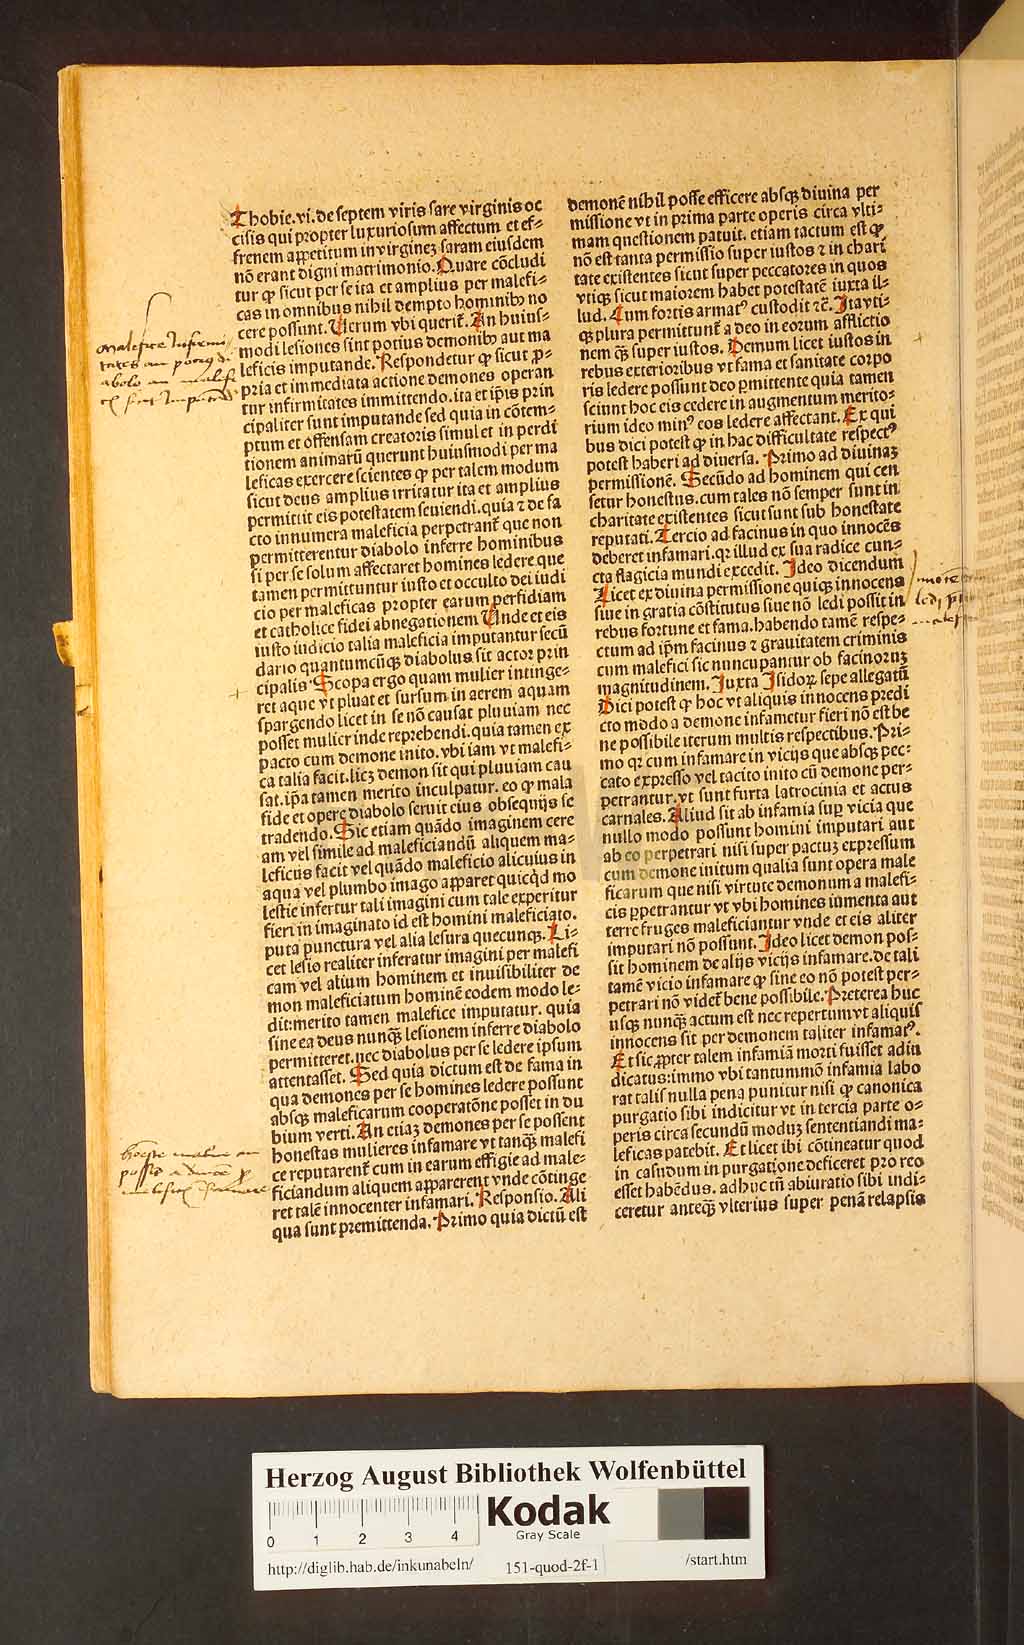 Thobie.vi.de septem viris sare virginis oc
cisis qui propter luxuriosum affectum et ef-
frenem appetitum in virginez saram eiusdem
nõ erant digni matrimonio. Quare cõcludi
tur qꝫ sicut per se ita et amplius per malefi-
cas in omnibus nihil dempto hominibꝫ no
cere possunt. Uerum vbi querit̃. An huius-
modi lesiones sint potius demonibꝫ aut ma
leficis imputande. Respondetur qꝫ sicut ꝓ-
pria et immediata actione demones operan
tur infirmitates immittendo. ita et ip̃is prin
cipaliter sunt imputande sed quia in cõtem-
ptum et offensam creatoris simul et in perdi
tionem animarũ querunt huiusmodi per ma
leficas exercere scientes qꝫ per talem modum
sicut deus amplius irritatur ita et amplius
permittit eis potestatem seuiendi. quia ⁊ de fa
cto innumera maleficia perpetrant̃ que non
permitterentur diabolo inferre hominibus
si per se solum affectaret homines ledere que
tamen permittuntur iusto et occulto dei iudi
cio per maleficas propter earum perfidiam
et catholice fidei abnegationem Unde et eis
iusto iudicio talia maleficia imputantur secũ
dario quantumcũqꝫ diabolus sit actor prin
cipalis. Scopa ergo quam mulier intinge-
ret aque vt pluat et sursum in aerem aquam
spargendo licet in se nõ causat pluuiam nec
posset mulier inde reprehendi. quia tamen ex
pacto cum demone inito. vbi iam vt malefi-
ca talia facit. licꝫ demon sit qui pluuiam cau
sat. ip̃a tamen merito inculpatur. eo qꝫ mala
fide et opere diabolo seruit eius obsequijs se
tradendo. Sic etiam quãdo imaginem cere
am vel simile ad maleficiandũ aliquem ma-
leficus facit vel quãdo maleficio alicuius in
aqua vel plumbo imago apparet quicq̃d mo
lestie infertur tali imagini cum tale experitur
fieri in imaginato id est homini maleficiato.
puta punctura vel alia lesura quecunqꝫ. Li-
cet lesio realiter inferatur imagini per malefi
cam vel alium hominem et inuisibiliter de
mon maleficiatum hominẽ eodem modo le-
dit: merito tamen malefice imputatur. quia
sine ea deus nunqꝫ̃ lesionem inferre diabolo
permitteret. nec diabolus per se ledere ipsum
attentasset. Sed quia dictum est de fama in
qua demones per se homines ledere possunt
absqꝫ maleficarum cooperatõne posset in du
bium verti. An etiaz demones per se possent
honestas mulieres infamare vt tanqꝫ̃ malefi
ce reputarent̃ cum in earum effigie ad male-
ficiandum aliquem apparerent vnde cõtinge
ret talẽ innocenter infamari. Responsio. Ali
qua sunt premittenda. Primo quia dictũ est
demonẽ nihil posse efficere absqꝫ diuina per
missione vt in prima parte operis circa vlti-
mam questionem patuit. etiam tactum est qꝫ
nõ est tanta permissio super iustos ⁊ in chari
tate existentes sicut super peccatores in quos
vtiqꝫ sicut maiorem habet potestatẽ iuxta il-
lud. Cum fortis armatꝰ custodit ⁊c̃. Ita vti-
qꝫ plura permittunt̃ a deo in eorum afflictio
nem qꝫ̃ super iustos. Demum licet iustos in
rebus exterioribus vt fama et sanitate corpo
ris ledere possunt deo ꝑmittente quia tamen
sciunt hoc eis cedere in augmentum merito-
rium ideo minꝰ eos ledere affectant. Ex qui
bus dici potest qꝫ in hac difficultate respectꝰ
potest haberi ad diuersa. Primo ad diuinaz
permissionẽ. Secũdo ad hominem qui cen
setur honestus. cum tales nõ semper sunt in
charitate existentes sicut sunt sub honestate
reputati. Tercio ad facinus in quo innocẽs
deberet infamari. qꝛ illud ex sua radice cun-
cta flagicia mundi excedit. Ideo dicendum
Licet ex diuina permissione quiqꝫ innocens
siue in gratia cõstitutus siue nõ ledi possit in
rebus fortune et fama. habendo tamẽ respe-
ctum ad ip̃m facinus ⁊ grauitatem criminis
cum malefici sic nuncupantur ob facinoruꝫ
magnitudinem. Iuxta Isidoꝝ sepe allegatũ
Dici potest qꝫ hoc vt aliquis innocens predi
cto modo a demone infametur fieri nõ est be
ne possibile iterum multis respectibus. Pri-
mo qꝛ cum infamare in vicijs que absqꝫ pec-
cato expresso vel tacito inito cũ demone per-
petrantur. vt sunt furta latrocinia et actus
carnales. Aliud sit ab infamia suꝑ vicia que
nullo modo possunt homini imputari aut
ab eo perpetrari nisi super pactuz expressum
cum demone initum qualia sunt opera male
ficarum que nisi virtute demonum a malefi-
cis ꝑpetrantur vt vbi homines iumenta aut
terre fruges maleficiantur vnde et eis aliter
imputari nõ possunt. Ideo licet demon pos-
sit hominem de alijs vicijs infamare. de tali
tamẽ vicio infamare qꝫ sine eo nõ potest per-
petrari nõ videt̃ bene possibile. Preterea huc
usqꝫ nunqꝫ̃ actum est nec repertum vt aliquis
innocens sit per demonem taliter infamatꝰ.
Et sic ꝓpter talem infamiã morti fuisset adiu
dicatus: immo vbi tantummõ infamia labo
rat talis nulla pena punitur nisi qꝫ canonica
purgatio sibi indicitur vt in tercia parte o-
peris circa secundũ moduz sententiandi ma-
leficas patebit. Et licet ibi cõtineatur quod
in casu dum in purgatione deficeret pro reo
esset habẽdus. adhuc tñ abiuratio sibi indi-
ceretur anteqꝫ̃ vlterius super penã relapsis
Herzog August Bibliothek Wolfenbüttel
Kodak
Gray Scale
0 1 2 3 4
http://diglib.hab.de/inkunabeln/ 151-quod-2f-1 /start.htm